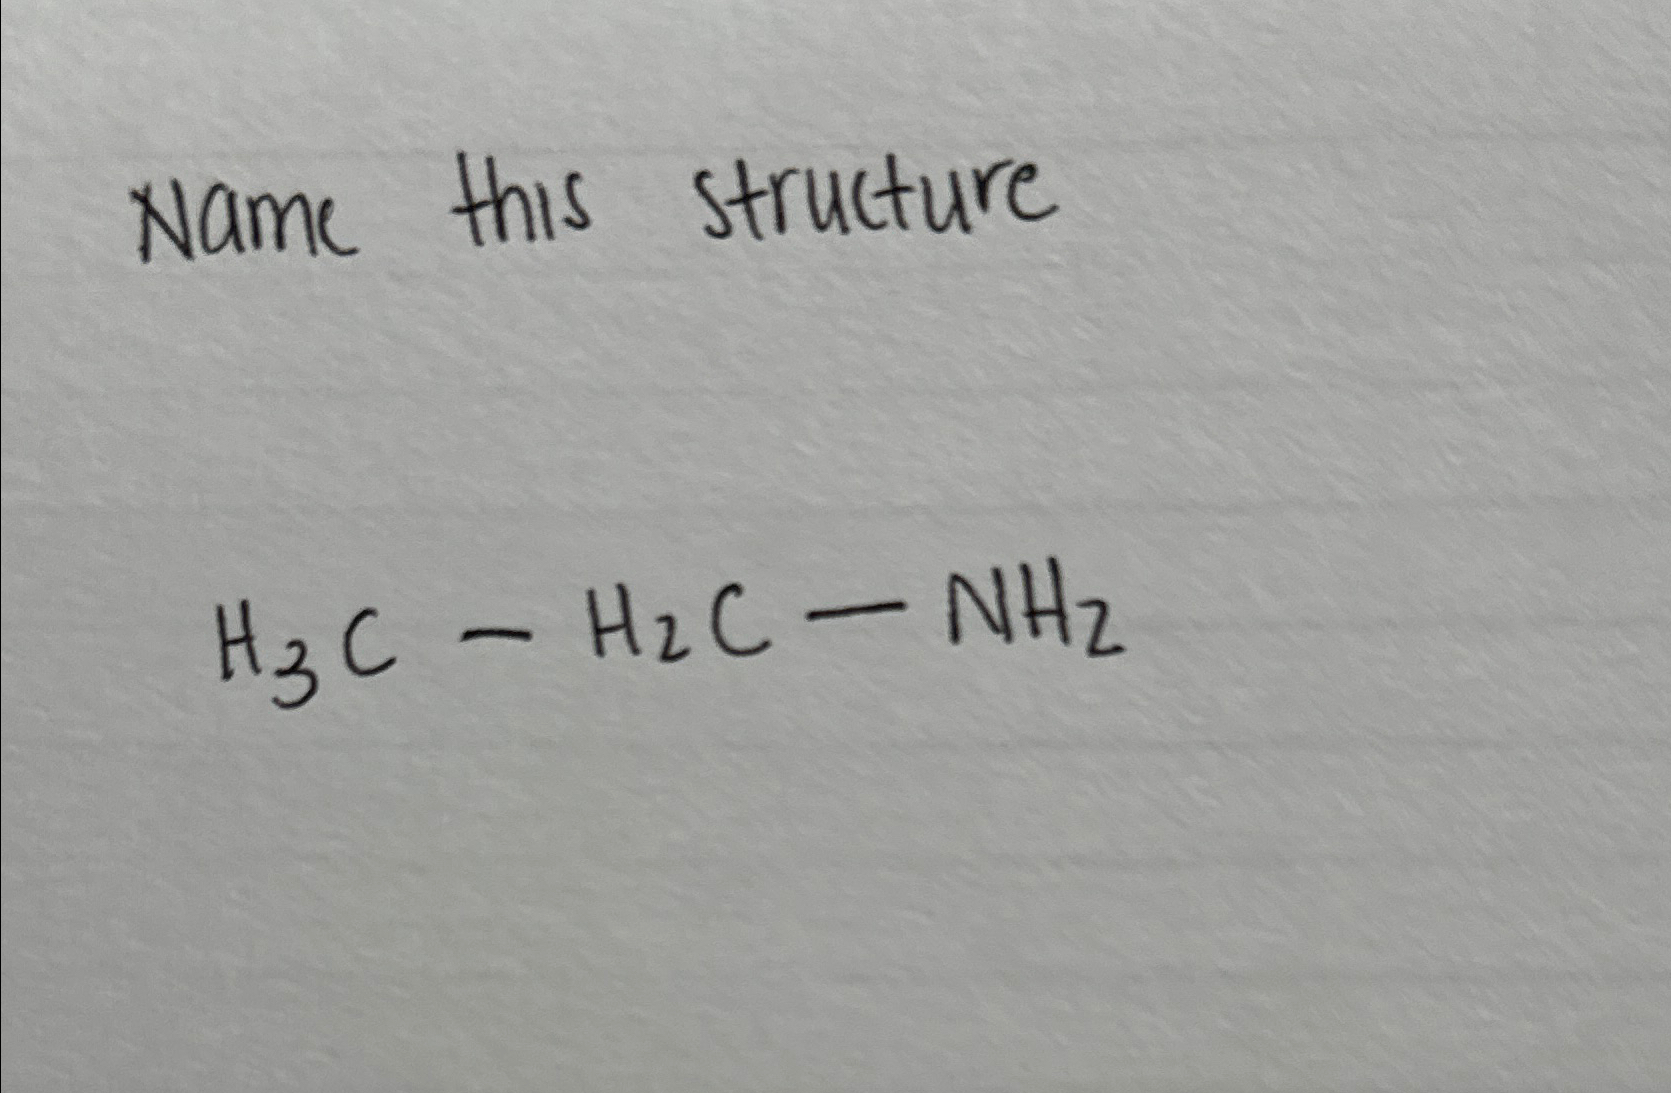 Name this structure
H₃C – H₂C – NH₂